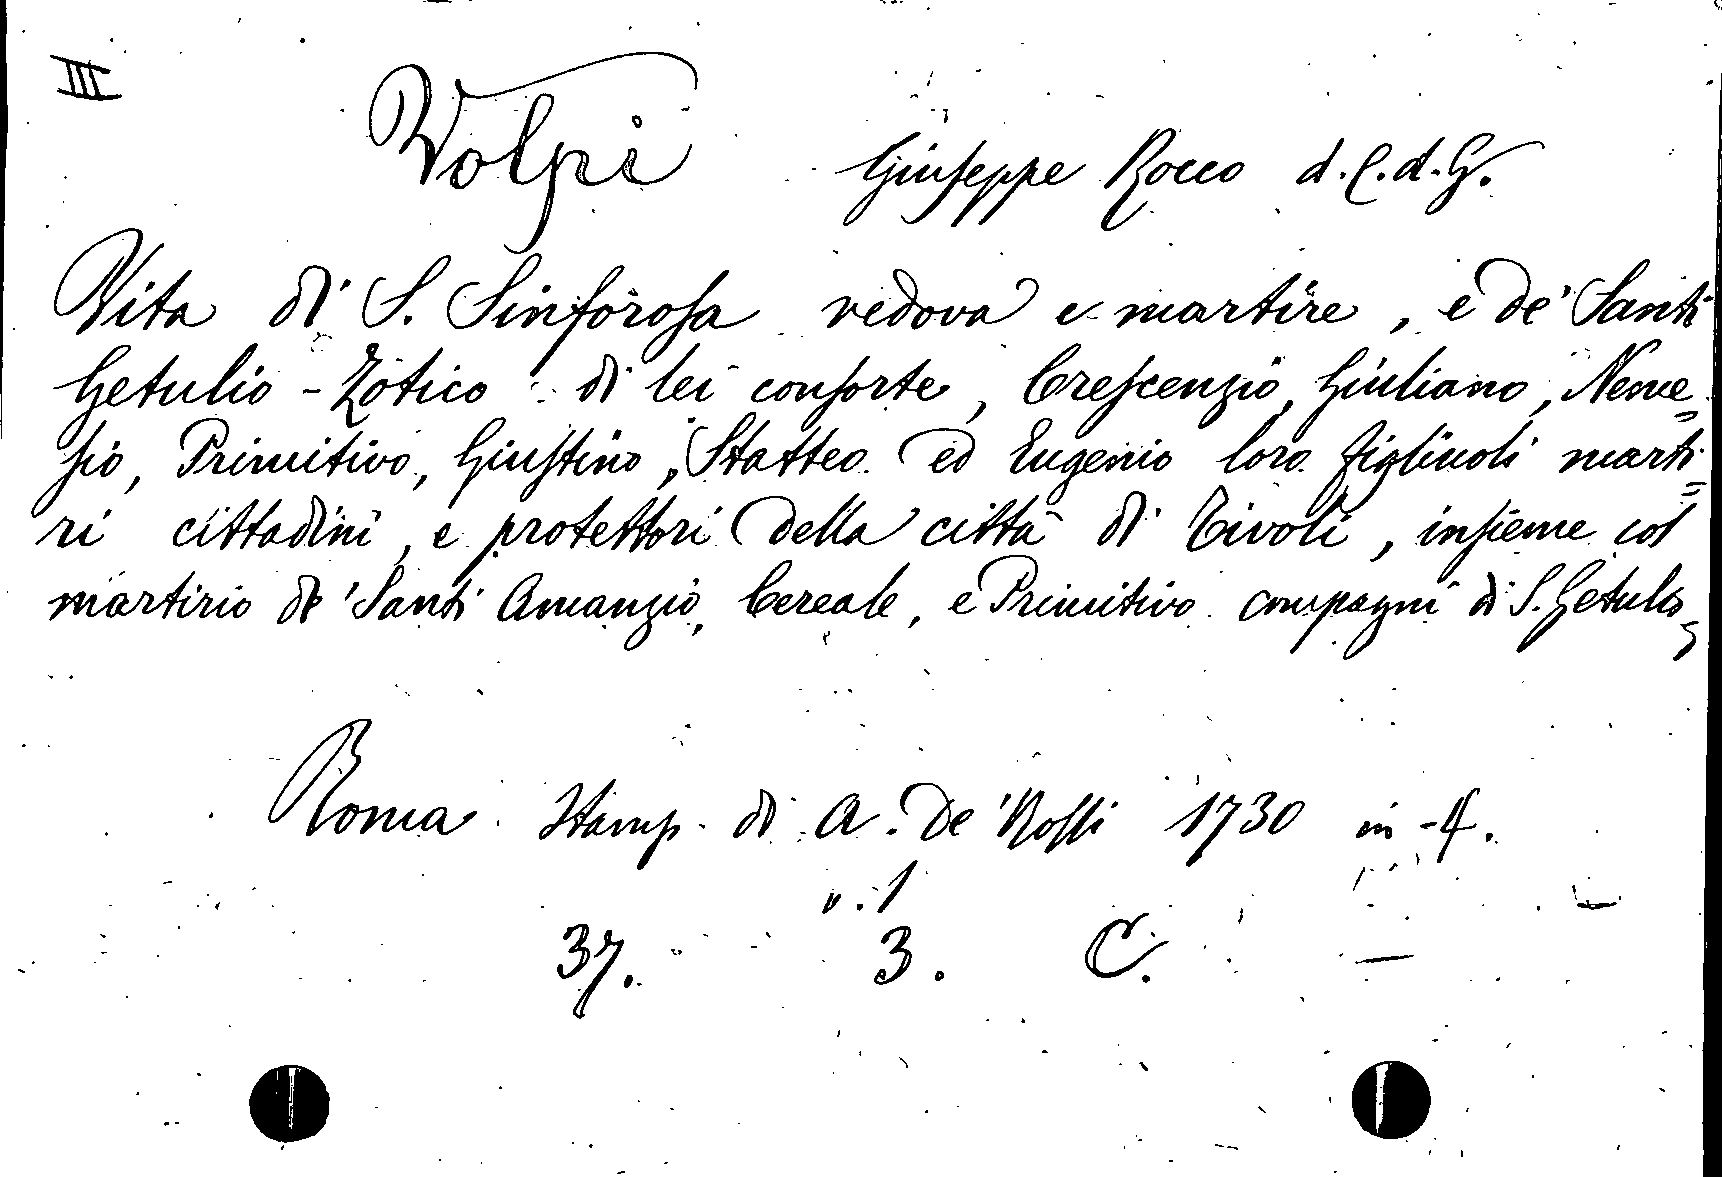 III
Volpi Giuseppe Rocco d. C. d. G.
Vita di S. Sinforosa vedova e martire, e de' Santi
Getulio-Zotico di lei consorte, Crescenzio, Giuliano, Neme=
sio, Primitivo, Giustino, Statteo ed Eugenio loro figliuoli marti=
ri cittadini, e protettori della città di Tivoli, insieme col
martirio de' Santi Amanzio, Cereale, e Primitivo compagni di S. Getulio,
Roma Stamp. di A. De' Rossi 1730 in-4.
n. 1
37. 3. C. —